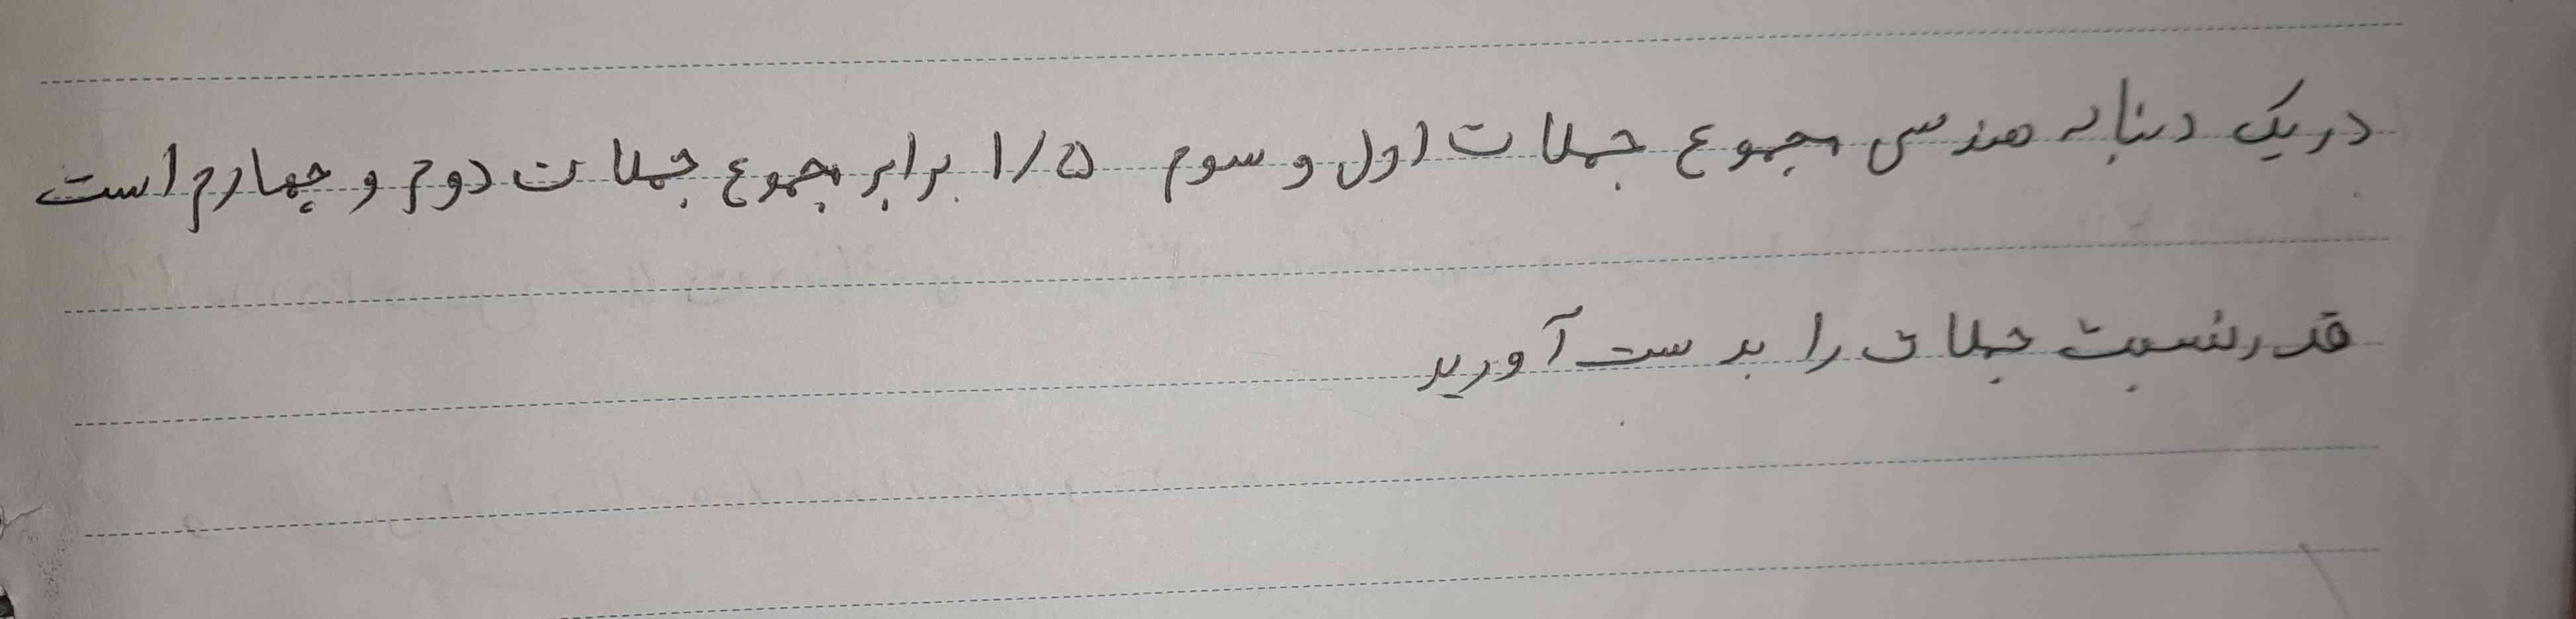 در یک دنباله هندسی مجموع جملات اول و سوم ۱/۵ برابر مجموع جملات دوم و چهارم است
قدرنسبت جملات را بدست آورید